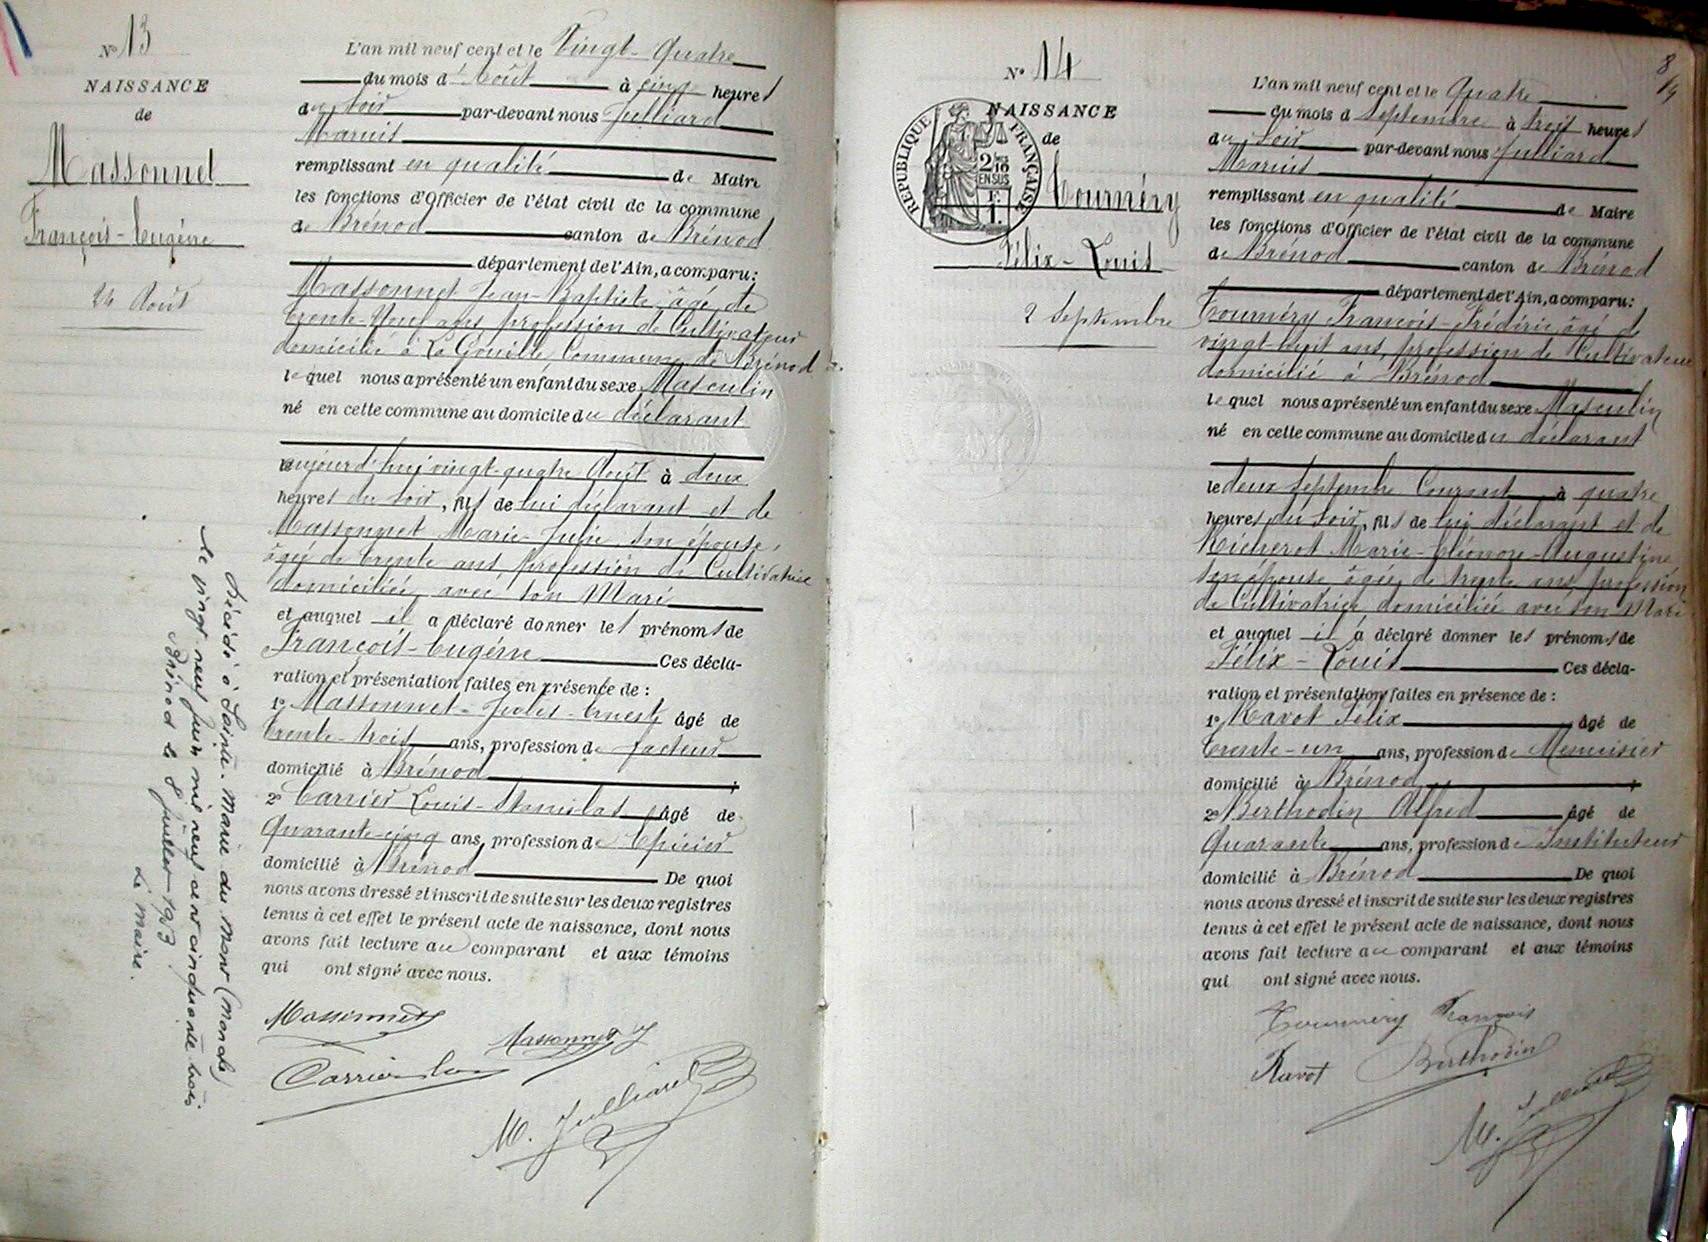 N° 13
NAISSANCE
de
Massonnet
François-Eugène
24 Août
L'an mil neuf cent et le Vingt-Quatre
du mois d'Août à cinq heures
du soir par-devant nous Julliard
Marius
remplissant en qualité de Maire
les fonctions d'Officier de l'état civil de la commune
de Brénod canton de Brénod
département de l'Ain, a comparu:
Massonnet Jean-Baptiste, âgé de
trente-neuf ans, profession de Cultivateur
domicilié à La Gouille, Commune de Brénod
lequel nous a présenté un enfant du sexe Masculin
né en cette commune au domicile du déclarant
aujourd'hui vingt-quatre Août à deux
heures du soir, fils de lui déclarant et de
Massonnet Marie-Julie, son épouse,
âgée de trente ans, profession de Cultivatrice
domiciliée avec son Mari
et auquel il a déclaré donner les prénoms de
François-Eugène Ces décla-
ration et présentation faites en présence de :
1° Massonnet-Jules-Ernest âgé de
trente-trois ans, profession de facteur
domicilié à Brénod
2° Carrier Louis-Stanislas âgé de
Quarante-cinq ans, profession de Epicier
domicilié à Brénod De quoi
nous avons dressé et inscrit de suite sur les deux registres
tenus à cet effet le présent acte de naissance, dont nous
avons fait lecture au comparant et aux témoins
qui ont signé avec nous.
Massonnet
Massonnet J
Carrier
M. Julliard
Décédé à Sainte-Marie du Mont (Manche)
le vingt neuf juin mil neuf cent cinquante trois
Brénod le 8 juillet 1953.
Le Maire.
8
N° 14
NAISSANCE
de
RÉPUBLIQUE FRANÇAISE
2/10
EN SUS
F.
1.
Tournéry
Félix-Louis
2 Septembre
L'an mil neuf cent et le Quatre
du mois d Septembre à trois heures
du soir par-devant nous Julliard
Marius
remplissant en qualité de Maire
les fonctions d'Officier de l'état civil de la commune
de Brénod canton de Brénod
département de l'Ain, a comparu:
Tournéry François-Frédéric âgé de
vingt-huit ans, profession de Cultivateur
domicilié à Brénod
lequel nous a présenté un enfant du sexe Masculin
né en cette commune au domicile du déclarant
le deux Septembre Courant à quatre
heures du soir, fils de lui déclarant et de
Richerot Marie-Eléonore-Augustine
son épouse âgée de trente ans, profession
de Cultivatrice domiciliée avec son Mari
et auquel il a déclaré donner les prénoms de
Félix-Louis Ces décla-
ration et présentation faites en présence de :
1° Ravot Félix âgé de
trente-un ans, profession de Menuisier
domicilié à Brénod
2° Berthodin Alfred âgé de
Quarante ans, profession de Instituteur
domicilié à Brénod De quoi
nous avons dressé et inscrit de suite sur les deux registres
tenus à cet effet le présent acte de naissance, dont nous
avons fait lecture au comparant et aux témoins
qui ont signé avec nous.
Tournéry François
Ravot Berthodin
M. Julliard